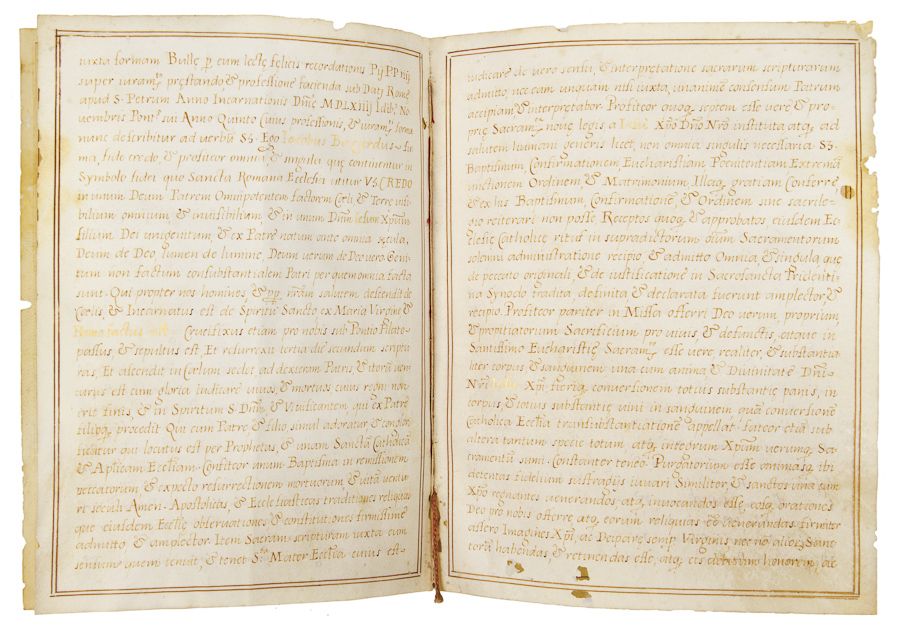 iuxta formam Bullę p̱ eum lectę felicis recordationis Pij PP iiij
super iuram.º pręstando, & professione facienda sub Datȷ Romę
apud S. Petrum Anno Incarnationis Dñicę MDLXIIIJ Idib9 No
uembris Pont.s sui Anno Quinto Cuius professionis, & iuram.ti forma
nunc describitur ad uerbũ S3. Ego Iacobus fir
ma, fide credo, & profiteor omnia, & singula quę continentur in
Symbolo fidei quo Sancta Romana Ecclesia utitur Vz. CREDO
in unum Deum Patrem Omnipotentem factorem Cęli & Terrę uisi
bilium omnium, & inuisibilium & in unum Dñm Iesum Xpum
filium Dei unigenitum, & ex Patre natum ante omnia sęcula,
Deum de Deo, lumen de lumine, Deum uerum de Deo uero Geni
tum non factum consubstantialem Patri per quem omnia facta
sunt. Qui propter nos homines, & pp̱. nr̃am salutem descendit de
Cœlis & Incarnatus est de Spiritu Sancto ex Maria Virgine &
Homo factus est. Crucifixus etiam pro nobis sub Pontio Pilato
passus, & sepultus est, Et resurrexit tertia die secundum scriptu
ras, Et ascendit in Cœlum sedet ad dexteram Patris & iterũ ven
turus est cum gloria iudicare uiuos, & mortuos cuius regni non
erit finis, & in Spiritum S. Dñm, & Viuificantem qui ex Patre
filioq; procedit Qui cum Patre & filio simul adoratur, & conglori
ficatur qui locutus est per Prophetas, & unam Sanctã Catholicã
& Aplicam Ecc̃liam. Confiteor unum Baptisma in remissionem
peccatorum & expecto resurrectionem mortuorum & uitã ventu
ri sęculi Amen. Apostolicas, & Ecclesiasticas traditiones reliquas
que eiusdem Ecclię obseruationes & constitutiones firmissimę
admitto & amplector Item Sacram scripturam iuxta eum
sensum quem tenuit, & tenet S.ta Mater Ecclia cuius est
iudicare de uero sensu, & interpretatione sacrarum scripturarum
admitto, nec eam unquam nisi iuxta, unanimẽ consensum Patrum
accipiam & interpretabor Profiteor quoq; septem esse uere & pro
prię Sacram.ta nouę legis, a Iesu Xp̃o Dño Nro instituta atq; ad
salutem humani generis licet, non omnia singulis necessaria S3.
Baptismum, Confirmationem, Eucharistiam, Pœnitentiam Extremã
unctionem Ordinem, & Matrimonium, Illaq; gratiam Conferre,
& ex his Baptismum, Confirmationẽ, & Ordinem sine sacrile
gio reiterari non posse Receptos quoq; & approbatos eiusdem Ec
clesię Catholicę ritus in supradictorum oĩum Sacramentorum
solemni administratione recipio & admitto Omnia & singula, quę
de peccato originali, & de iustificatione in Sacrosancta Tridenti
na Synodo tradita, definita & declarata fuerunt amplector, &
recipio. Profiteor pariter in Missa offerri Deo uerum, proprium,
& propitiatorium Sacrificium pro uiuis, & defunctis, atque in
Santissimo Eucharistię Sacram.to esse uere, realiter, & substantia
liter corpus & sanguinem una cum anima, & Diuinitate Dñi
Nr̃i Iesu Xp̃i, fieriq; conuersionem totius substantię panis, in
corpus, & totius substantię uini in sanguinem quã conuersionẽ
Catholica Ecclia transubstantiatione appellat. fateor etiã sub
altera tantum specie totam atq; integrum Xpum uerumq; Sa
cramentũ sumi. Constanter teneo Purgatorium esse animasq; ibi
detentas fidelium suffragijs iuuari Similiter, & sanctos una cum
Xpo regnantes uenerandos, atq; inuocandos esse, eosq; orationes
Deo pro nobis offerre atq; eorum reliquias eẽ uenerandas. firmiter
assero Imagines Xpi, ac Deiparę semp̱ Virginis necnõ alior̃ Sanc
torũ habendas, & retinendas esse, atq; eis debitum honorem, ac